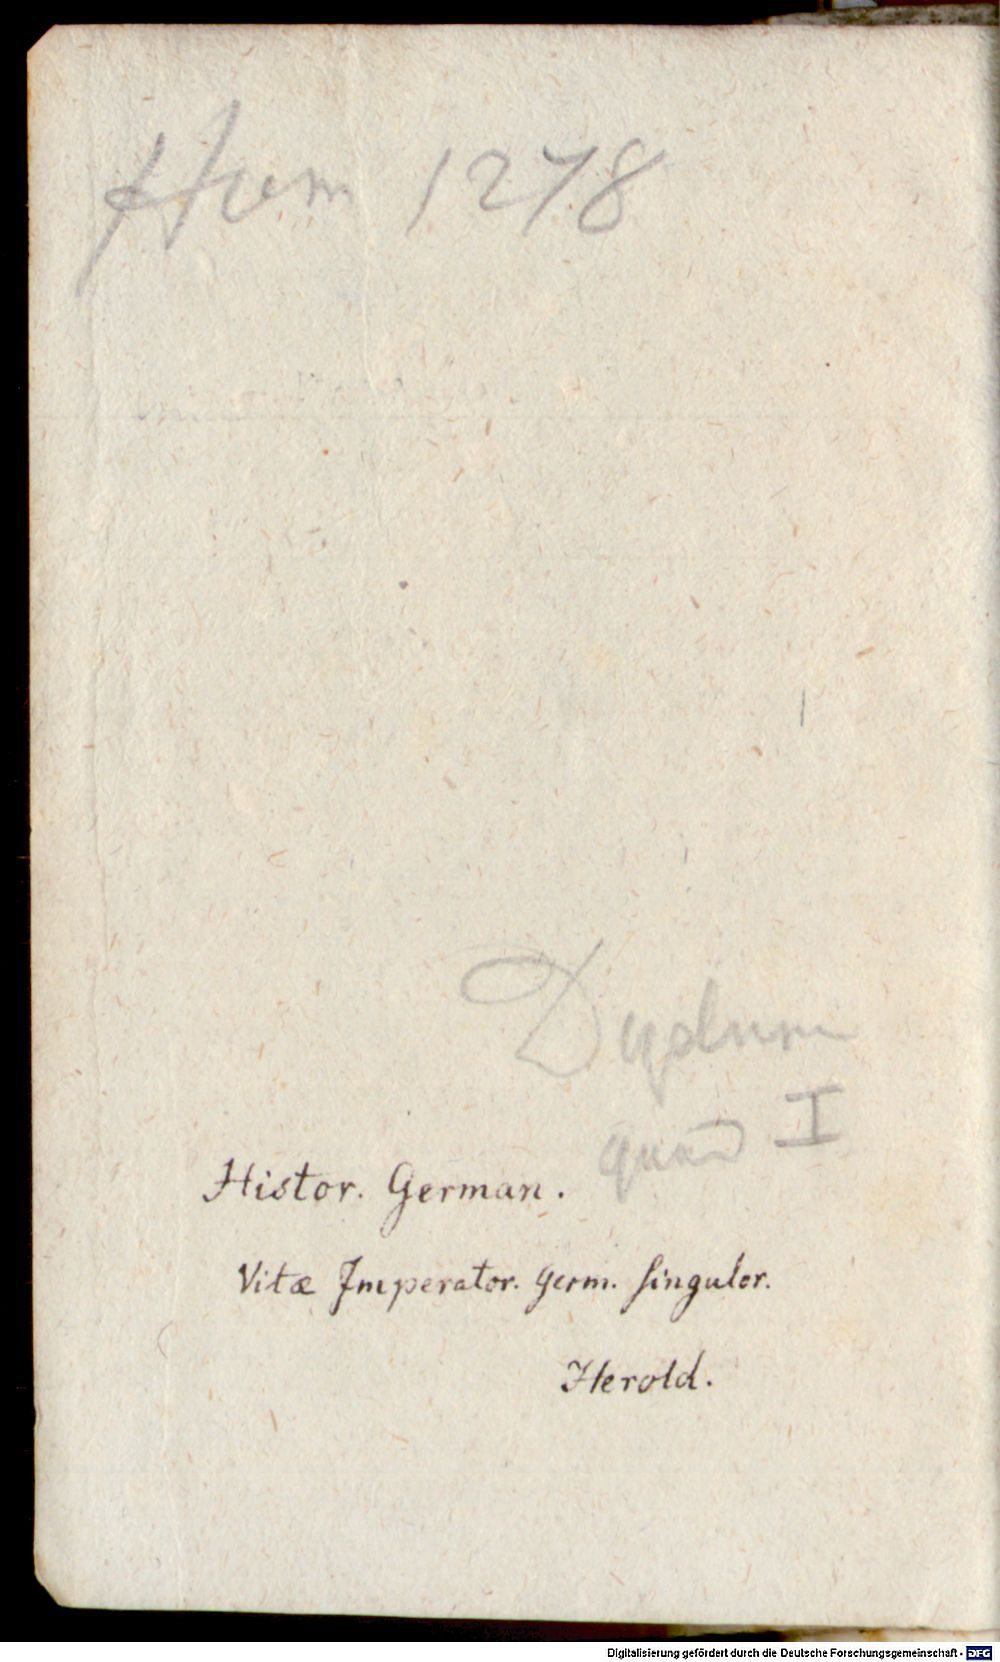 Hum 1278
I
Histor. German.
Vitæ Imperator. Germ. singulor.
Herold.
Digitalisierung gefördert durch die Deutsche Forschungsgemeinschaft - DFG